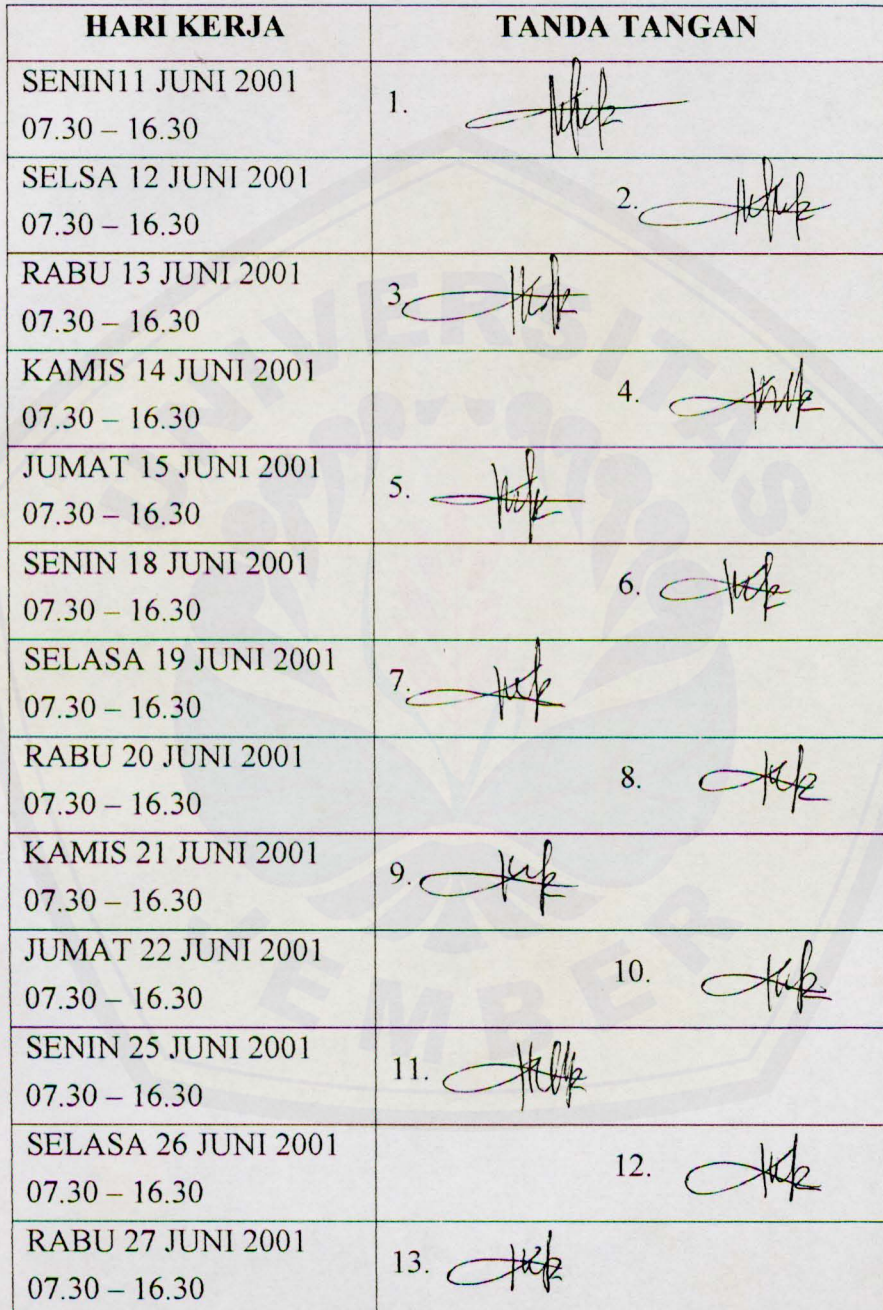 HARI KERJA TANDA TANGAN
SENIN11 JUNI 2001
07.30 – 16.30
1.
SELSA 12 JUNI 2001
07.30 – 16.30
2.
RABU 13 JUNI 2001
07.30 – 16.30
3.
KAMIS 14 JUNI 2001
07.30 – 16.30
4.
JUMAT 15 JUNI 2001
07.30 – 16.30
5.
SENIN 18 JUNI 2001
07.30 – 16.30
6.
SELASA 19 JUNI 2001
07.30 – 16.30
7.
RABU 20 JUNI 2001
07.30 – 16.30
8.
KAMIS 21 JUNI 2001
07.30 – 16.30
9.
JUMAT 22 JUNI 2001
07.30 – 16.30
10.
SENIN 25 JUNI 2001
07.30 – 16.30
11.
SELASA 26 JUNI 2001
07.30 – 16.30
12.
RABU 27 JUNI 2001
07.30 – 16.30
13.
UNIVERSITAS
JEMBER